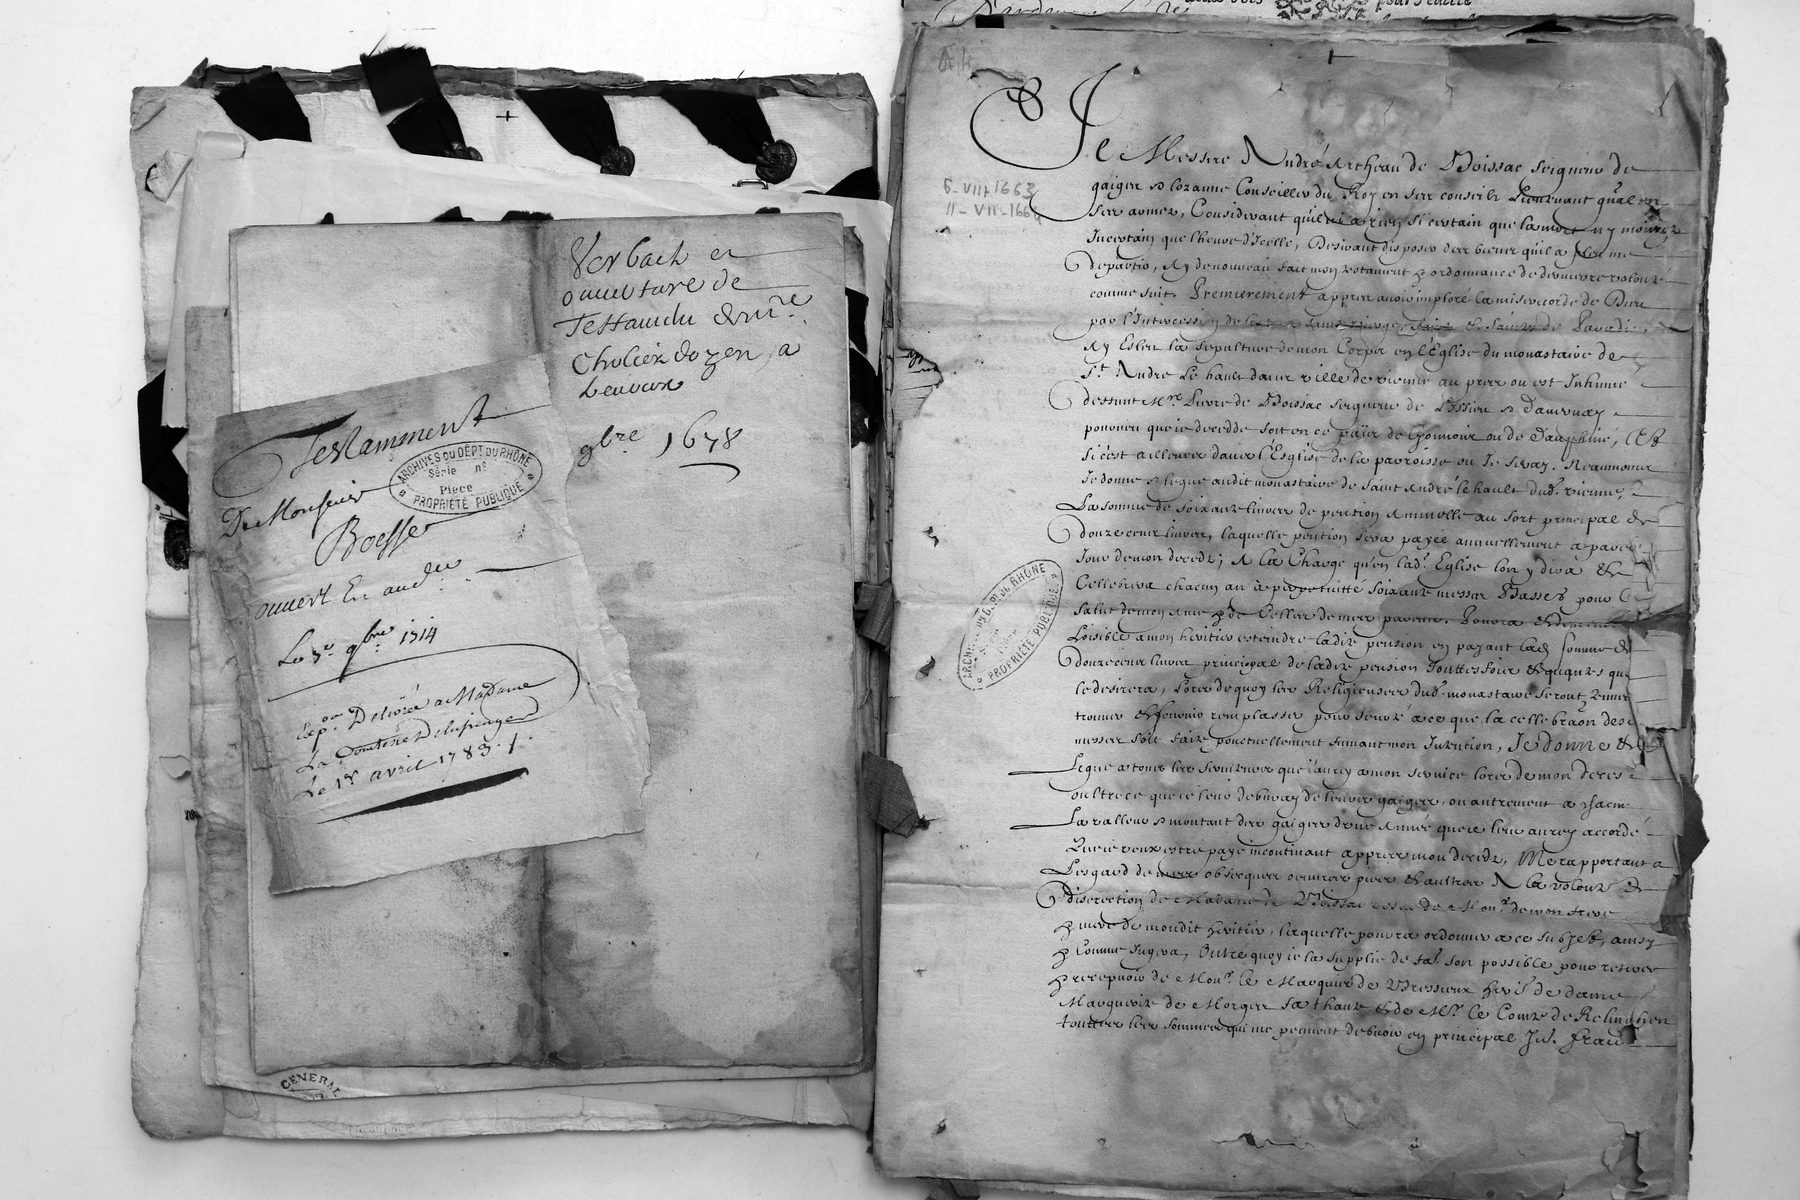 Verbail et
ouverture de
Testamdu de mre
Cholier doyen a
9bre 1678
Testamment
De Monsieur
Boesse
ouvert En audce
Le 3e 9bre 1714
Exp.on Délivrée a Madame
La Comtesse
Le 1er avril 1783.
ARCHIVES DU DÉPT DU RHÔNE
Série no
Piece
PROPRIÉTÉ PUBLIQUE
GENERAL
6-VII-1663
11-VII-1664
Je Messire André Artheau de Boissac seigneur de
gaiger & lozanne Conseiller du Roy en ses conseils Lieutenant gnal en
ses armes, Considerant qu'il n'i a rien si certain que la mort n'y moings
Incertain que l'heure d'Icelle, Desirant disposer des biens qu'il a pleu me
departir, Ay de nouveau fait mon testament & ordonnance de derniere volonté
comme suit. Premierement appres avoir imploré la misericorde de Dieu
par l'Intercession de la tres sainte vierge & saints de Paradis,
Ay Esleu la sepulture de mon Corps en l'Eglise du monastaire de
St André le hault dans ville de vienne au pres ou est Inhumé
deffunt Mre Pierre de Boissac seigneur de
pourveu que ie decedde soit en ce païs de Lyonnois ou de Dauphiné, Et
si c'est ailleurs dans l'Esglise de la parroisse ou Je seray. Neanmoins
Je donne & legue audit monastaire de saint André le hault dud. vienne,
La somme de soixante livres de pention Annuelle au sort principal de
douze cens livres, laquelle pention sera payée annuellement a pareil
Jour de mon decedz, A la Charge qu'en lad. Eglise lon y dira &
Cellebrera chacun an à perpetuitté soixante messes Basses pour le
salut de mon Ame & de Celles de mes parens. Pourra
Loisible a mon heritier esteindre ladite pension en payant lad. somme de
douze cens livres principal de ladite pension touttesfois & quantes que
le desirera, Lors de quoy les Religieuses dud. monastaire seront tenues
trouver & fournir remplasser pour servir a ce que la cellebraon des
messes soit faite ponctuellement suivant mon Intention, Je donne &
Legue a tous les serviteurs que i'aurey a mon service lors de mon deces
oultre ce que ie leur debvray de leurs gaiges, ou autrement a chacun
La valleur & montant des gaiges d'une Année que ie leur aurey accordé
Que ie veux estre payé incontinant appres mon decedz, Me rapportant a
L'esgard de mes obseques oeuvres pies & aultres A la volonté &
discrection de Madame de Boissac vesve de Monr de mon frere
& mere de mondit heritier, laquelle pourra ordonner a ce subjet, ainsy
& Comme Jugera, Outre quoy ie la supplie de fa. son possible pour retirer
& recepvoir de Monr le Marquis de Bressieux heri. de dame
Marguerite de Morges sa thante & de Mr le Comte de
touttes les sommes qui me peuvent debvoir en principal Int. fraiz
ARCHIVES DU DÉPT DU RHÔNE
PROPRIÉTÉ PUBLIQUE